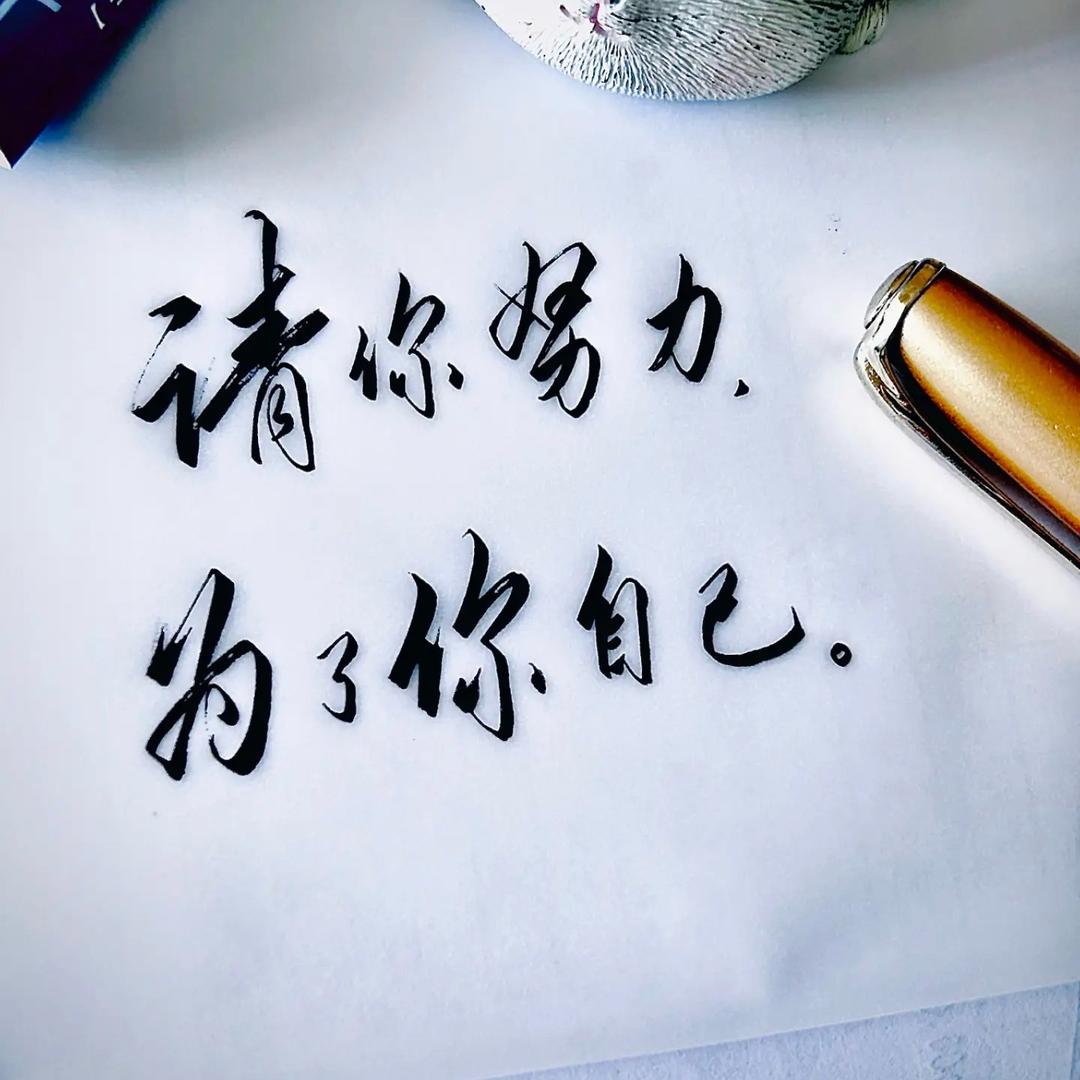 请你努力，
为了你自己。